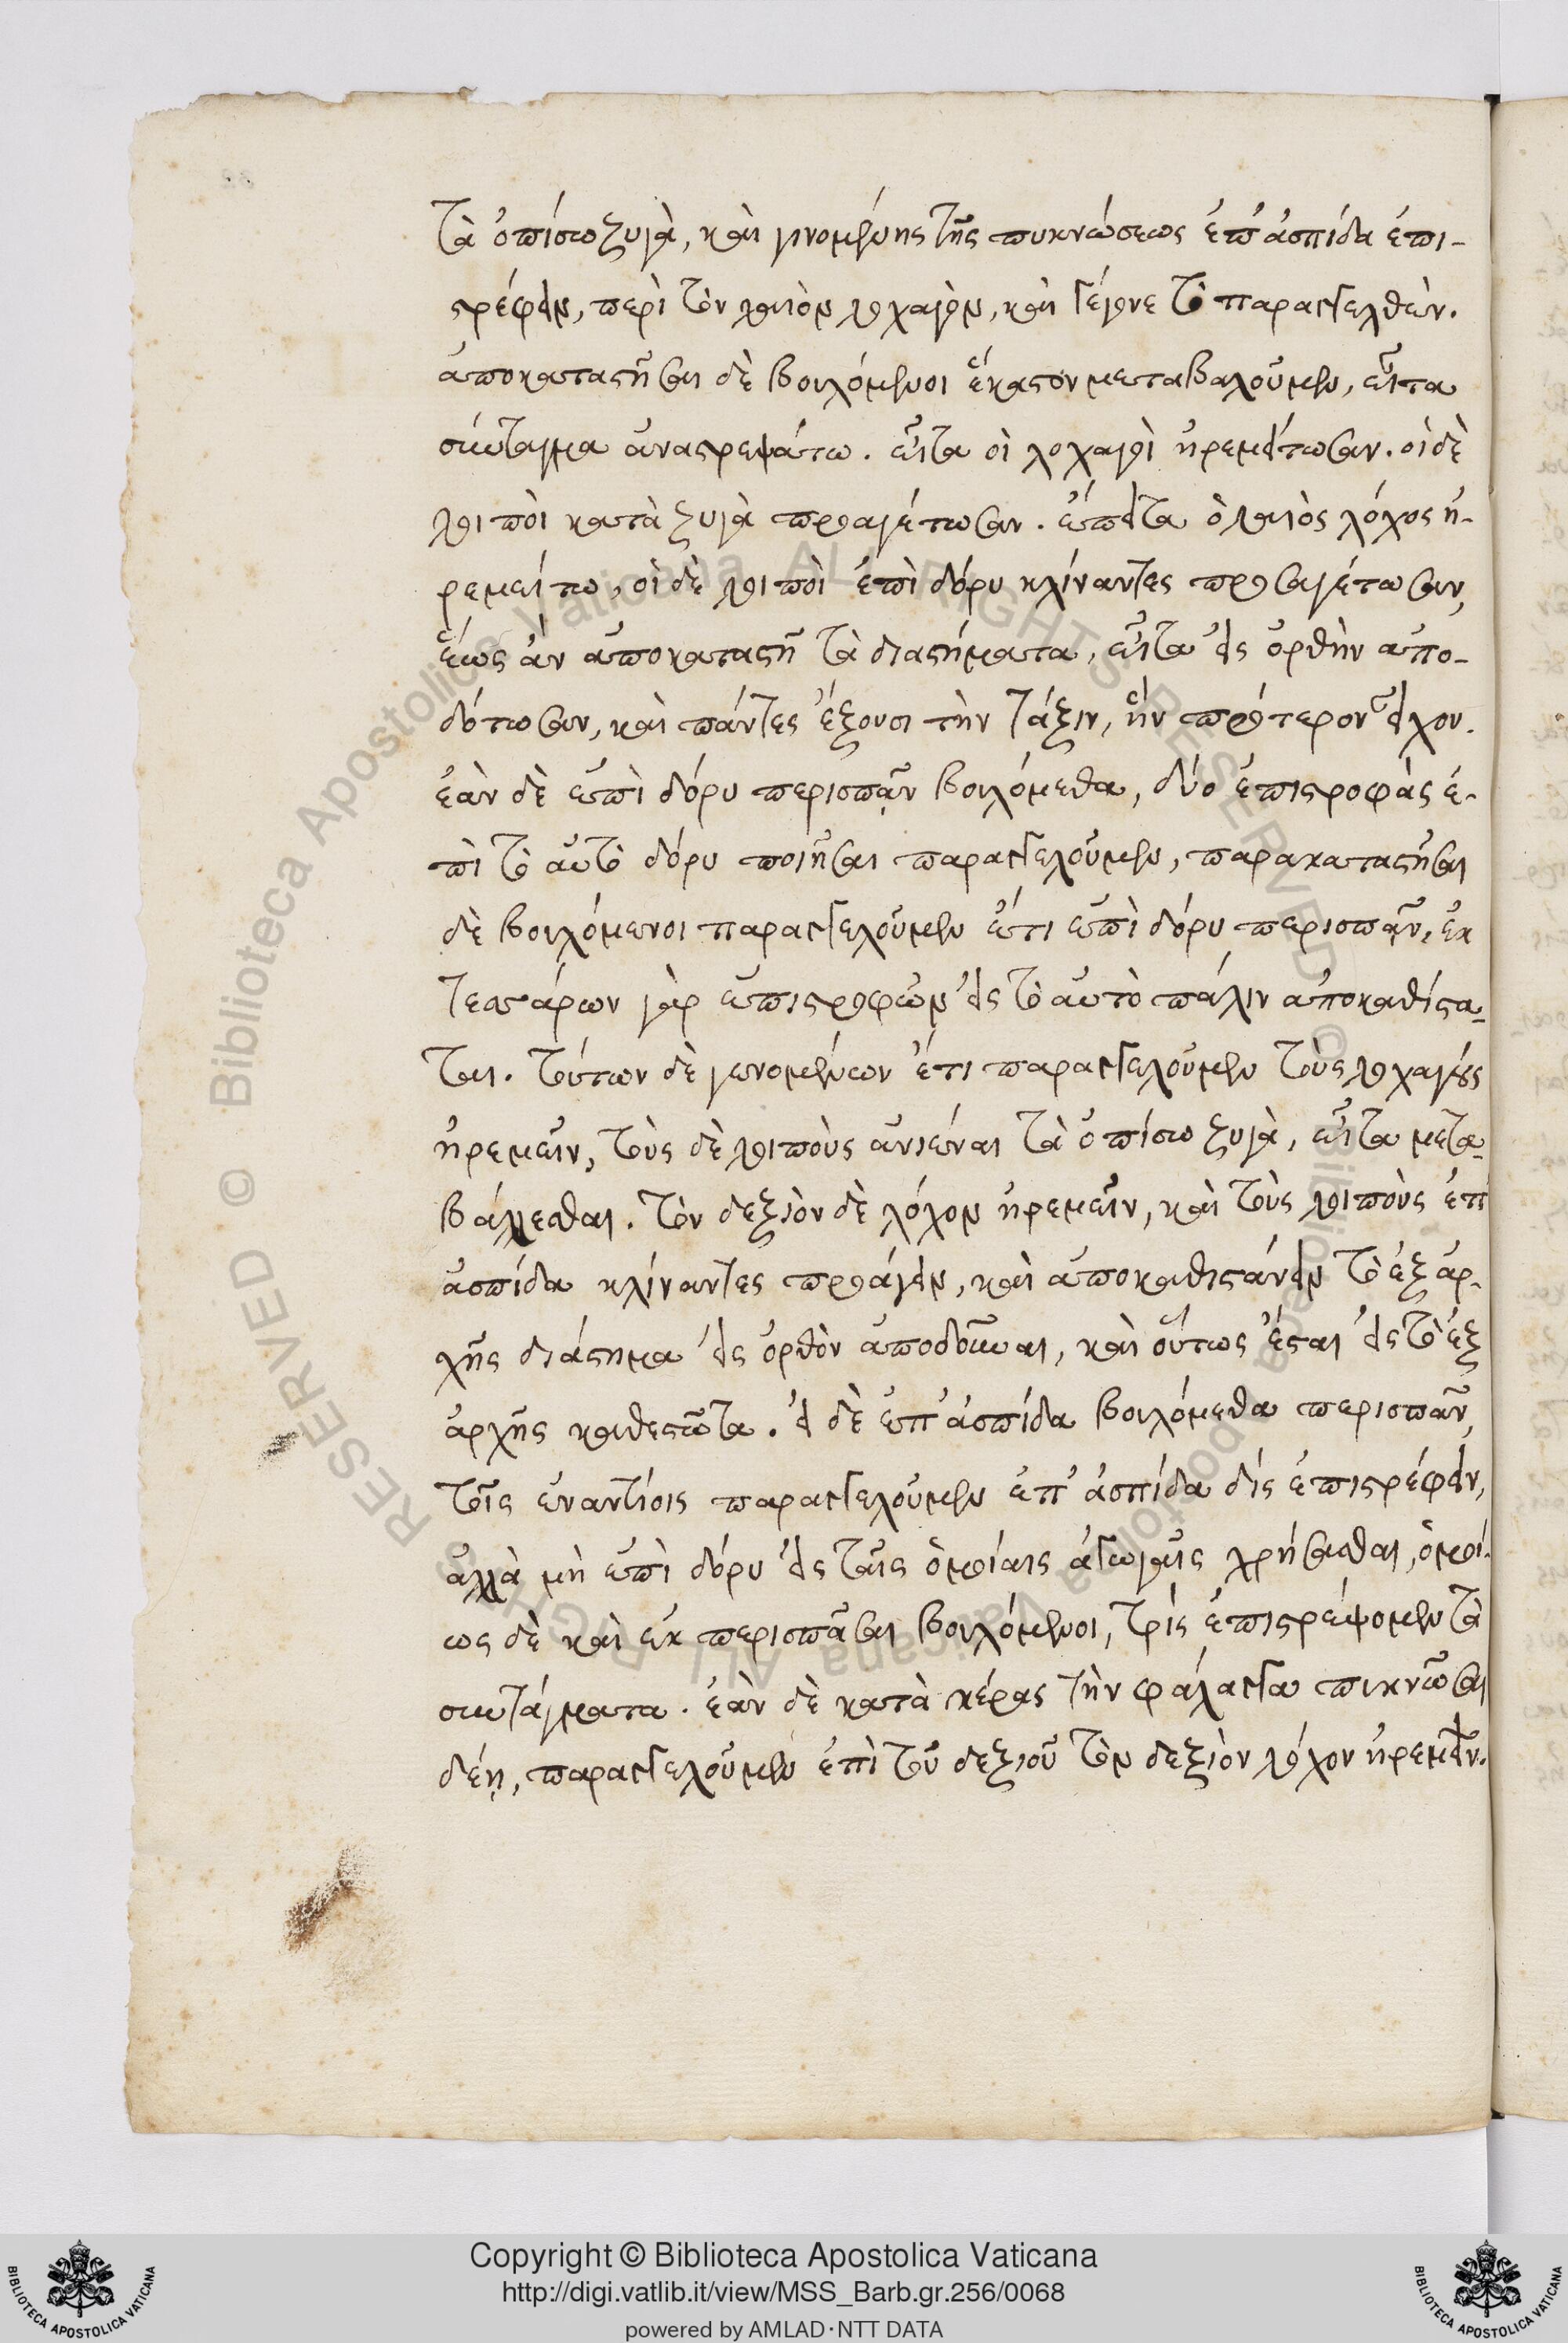 τὰ ὀπίσω ζυγὰ, καὶ γινομένης τῆς πυκνώσεως ἐπ' ἀσπίδα ἐπι-
στρέφειν, περὶ τὸν λαιὸν λοχαγὸν, καὶ γέγονε τὸ παραγγελθὲν.
ἀποκαταστῆσαι δὲ βουλόμενοι ἕκαστον μεταβαλοῦμεν, εἶτα
σύνταγμα ἀναστρεψάτω. εἶτα οἱ λοχαγοὶ ἠρεμείτωσαν. οἱ δὲ
λοιποὶ κατὰ ζυγὰ προαγέτωσαν. ἔπειτα ὁ λαιὸς λόχος ἠ-
ρεμείτω, οἱ δὲ λοιποὶ ἐπὶ δόρυ κλίναντες προαγέτωσαν,
ἕως ἂν ἀποκαταστῇ τὰ διαστήματα, εἶτα εἰς ὀρθὴν ἀπο-
δότωσαν, καὶ πάντες ἕξουσι τὴν τάξιν, ἣν πρότερον εἶχον.
ἐὰν δὲ ἐπὶ δόρυ περισπᾷν βουλόμεθα, δύο ἐπιστροφὰς ἐ-
πὶ τὸ αὐτὸ δόρυ ποιῆσαι παραγγελοῦμεν, παρακαταστῆσαι
δὲ βουλόμενοι παραγγελοῦμεν ἔτι ἐπὶ δόρυ περισπᾷν, ἐκ
τεσσάρων γὰρ ἐπιστροφῶν εἰς τὸ αὐτὸ πάλιν ἀποκαθίστα-
ται. τούτων δὲ γενομένων ἔτι παραγγελοῦμεν τοὺς λοχαγοὺς
ἠρεμεῖν, τοὺς δὲ λοιποὺς ἀνιέναι τὰ ὀπίσω ζυγὰ, εἶτα μετα-
βάλλεσθαι. τὸν δεξιὸν δὲ λόχον ἠρεμεῖν, καὶ τοὺς λοιποὺς ἐπ'
ἀσπίδα κλίναντες προάγειν, καὶ ἀποκαθιστάνειν τὸ ἐξ ἀρ-
χῆς διάστημα εἰς ὀρθὸν ἀποδοῦναι, καὶ οὕτως ἔσται εἰς τὸ ἐξ
ἀρχῆς καθεστῶτα. εἰ δὲ ἐπ' ἀσπίδα βουλόμεθα περισπᾶν,
τοῖς ἐναντίοις παραγγελοῦμεν ἐπ' ἀσπίδα δίς ἐπιστρέφειν,
ἀλλὰ μὴ ἐπὶ δόρυ εἰς ταῖς ὁμοίαις ἀγωγαῖς χρήσασθαι, ὁμοί-
ως δὲ καὶ ἐκ περισπᾶσαι βουλόμενοι, τρίς ἐπιστρέψομεν τὰ
συντάγματα. ἐὰν δὲ κατὰ κέρας τὴν φάλαγγα πικνῶσαι
δέῃ, παραγγελοῦμεν ἐπὶ τοῦ δεξιοῦ τὸν δεξιὸν λόχον ἠρεμεῖν.
Copyright © Biblioteca Apostolica Vaticana
http://digi.vatlib.it/view/MSS_Barb.gr.256/0068
powered by AMLAD·NTT DATA